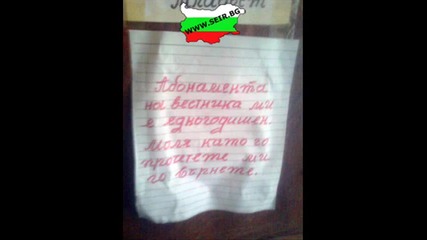 WWW.SEIR.BG
Абонамента
на вестника ми
е едногодишен.
Моля като го
прочетете ми
го върнете.